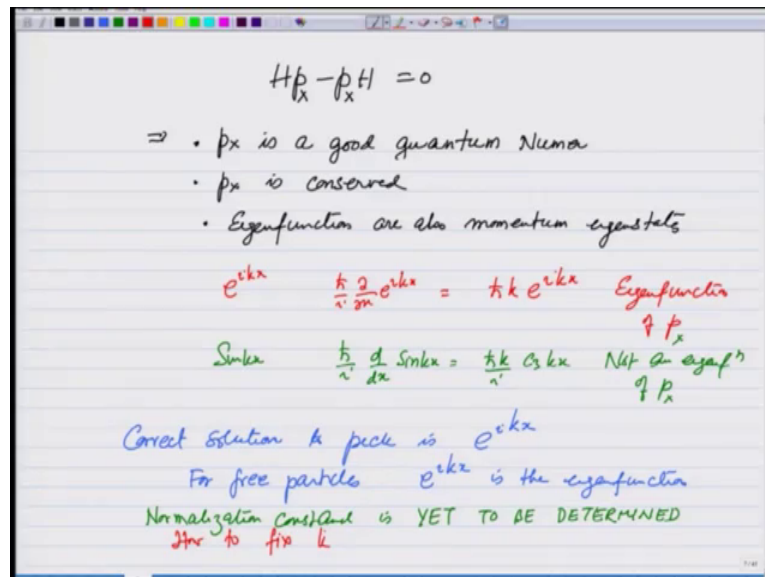 Hpₓ - pₓH = 0
⇒ · pₓ is a good quantum Numer
· pₓ is conserved
· Eigenfunction are also momentum eigenstats
e^{ikx} ħ/i ∂/∂x e^{ikx} = ħk e^{ikx} Eigenfunction
of pₓ
Sinkx ħ/i d/dx Sinkx = ħk/i Cos kx Not an eigenfⁿ
of pₓ
Correct solution to pick is e^{ikx}
For free particles e^{ikx} is the eigenfunction
Normalization constant is YET TO BE DETERMINED
How to fix k